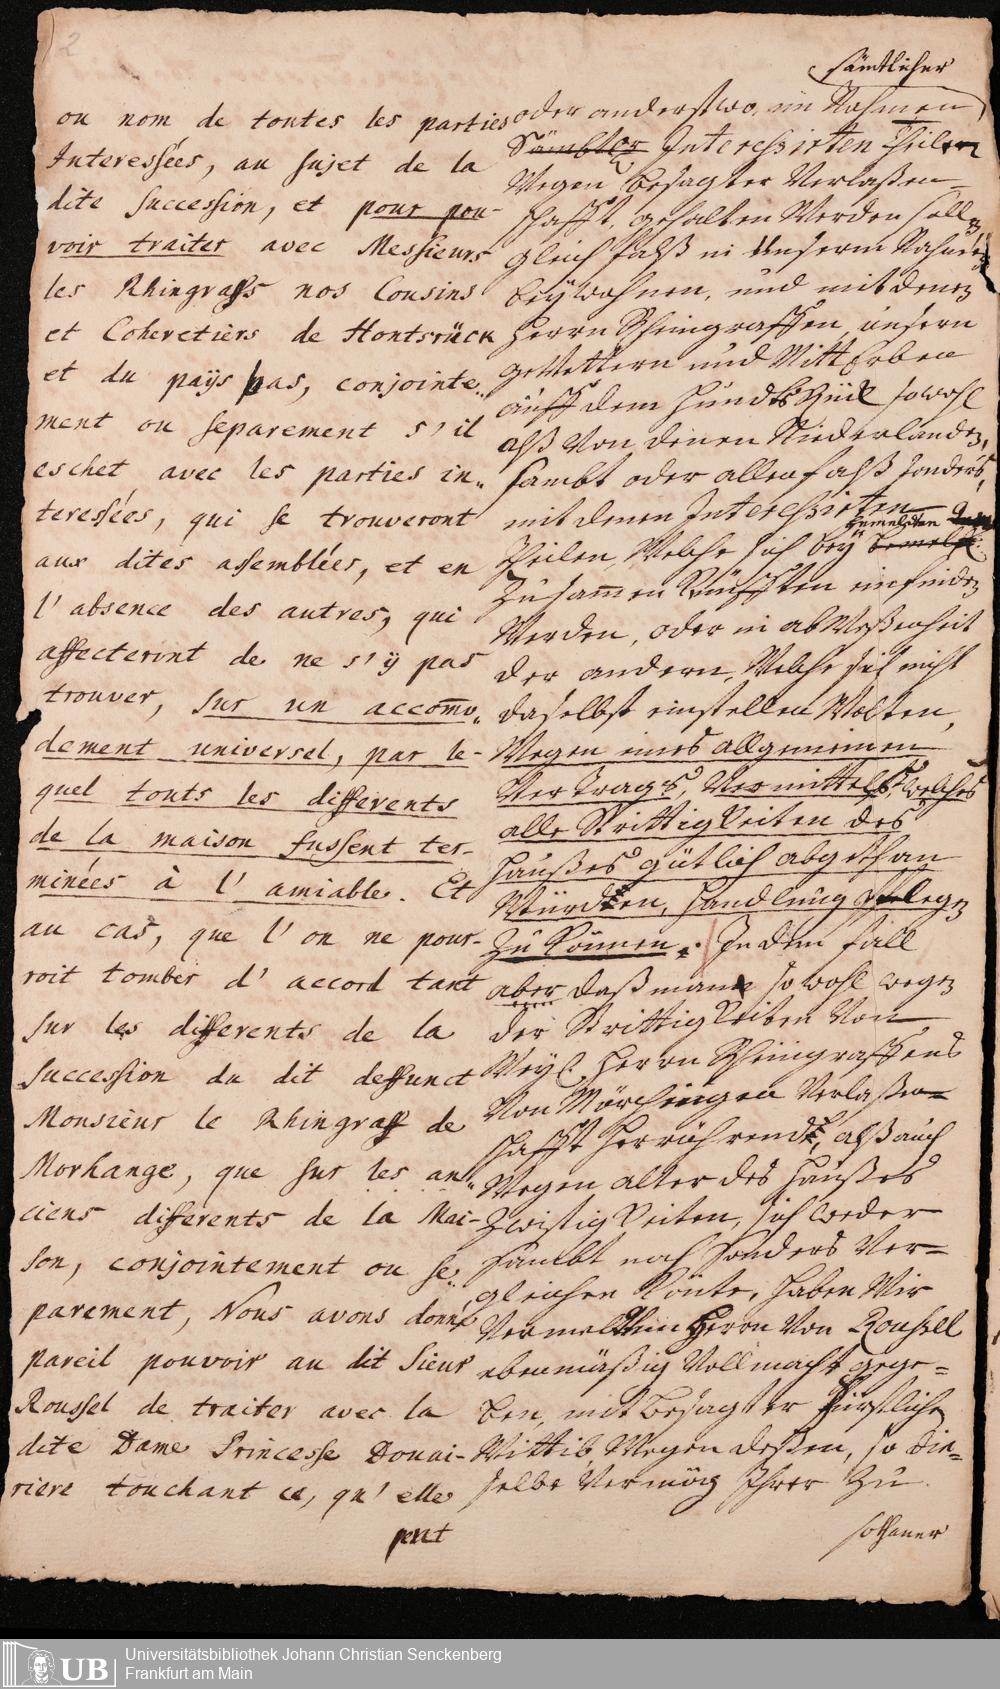 2
ou nom de toutes les parties
Interessées, au sujet de la
dite succession, et pour pou-
voir traiter avec Messieurs
les Rhingraffs nos Cousins
et Coheretiers de Hontsrück
et du païs pas, conjointe„
ment ou separement s'il
eschet avec les parties in„
teressées, qui se trouveront
aux dites assemblées, et en
l'absence des autres, qui
affecteront de ne s'ÿ pas
trouver, sur un accomo„
dement universel, par le-
quel touts les differents
de la maison fussent ter-
minées à l'amiable. Et
au cas, que l'on ne pour-
roit tomber d'accord tant
sur les differents de la
succession du dit deffunct
Monsieur le Rhingraff de
Morhange, que sur les an„
ciens differents de la Mai-
son, conjointement ou se„
parement, Nous avons donné
pareil pouvoir au dit Sieur
Roussel de traiter avec la
dite Dame Princesse Douai-
riere touchant ce, qu'elle
peut
sämtlicher
oder anderstwo, im Nahmen
Sämbtler Interessirten Theilen
Wegen besagter Verlaßen-
schafft, gehalten Werden sollen
gleichfalß in Unserm Nahmen
beÿwohnen, und mit denen
Herrn Rheingraffen, unsern
geVettern und MittErben
auff dem HundtsRück sowohl
alß Von denen Niederlanden,
sambt oder allenfalß sonders,
mit denen Interessirten
gemeldten
Theilen, Welche sich beÿ
Zusammen Künfften einfinden
Werden, oder in abWeßenheit
der andern, Welche sich nicht
daselbst einstellen Wolten,
Wegen eines allgemeinen
Vertrags, Vermittelst, welches
alle Strittigkeiten des
Haußes gütlich abgethan
Würden, Handlung pflegen
Zu Können. In dem fall
aber daß man sowohl wegen
der Strittigkeiten Von
Weyl. Herrn Rheingraffens
Von Mörchingen Verlaßen-
schafft herrührend, alß auch
Wegen alter des Haußes
Zwistigkeiten, sich weder
sambt noch sonders Ver-
gleichen Könte, haben Wir
Vermeldten Herrn Von Roussell
ebenmäßig Vollmacht gege-
ben, mit besagter Fürstlichen
Wittib, Wegen deßen, so die-
selbe Vermög Ihrer Zu
sothaner
UB
Universitätsbibliothek Johann Christian Senckenberg
Frankfurt am Main